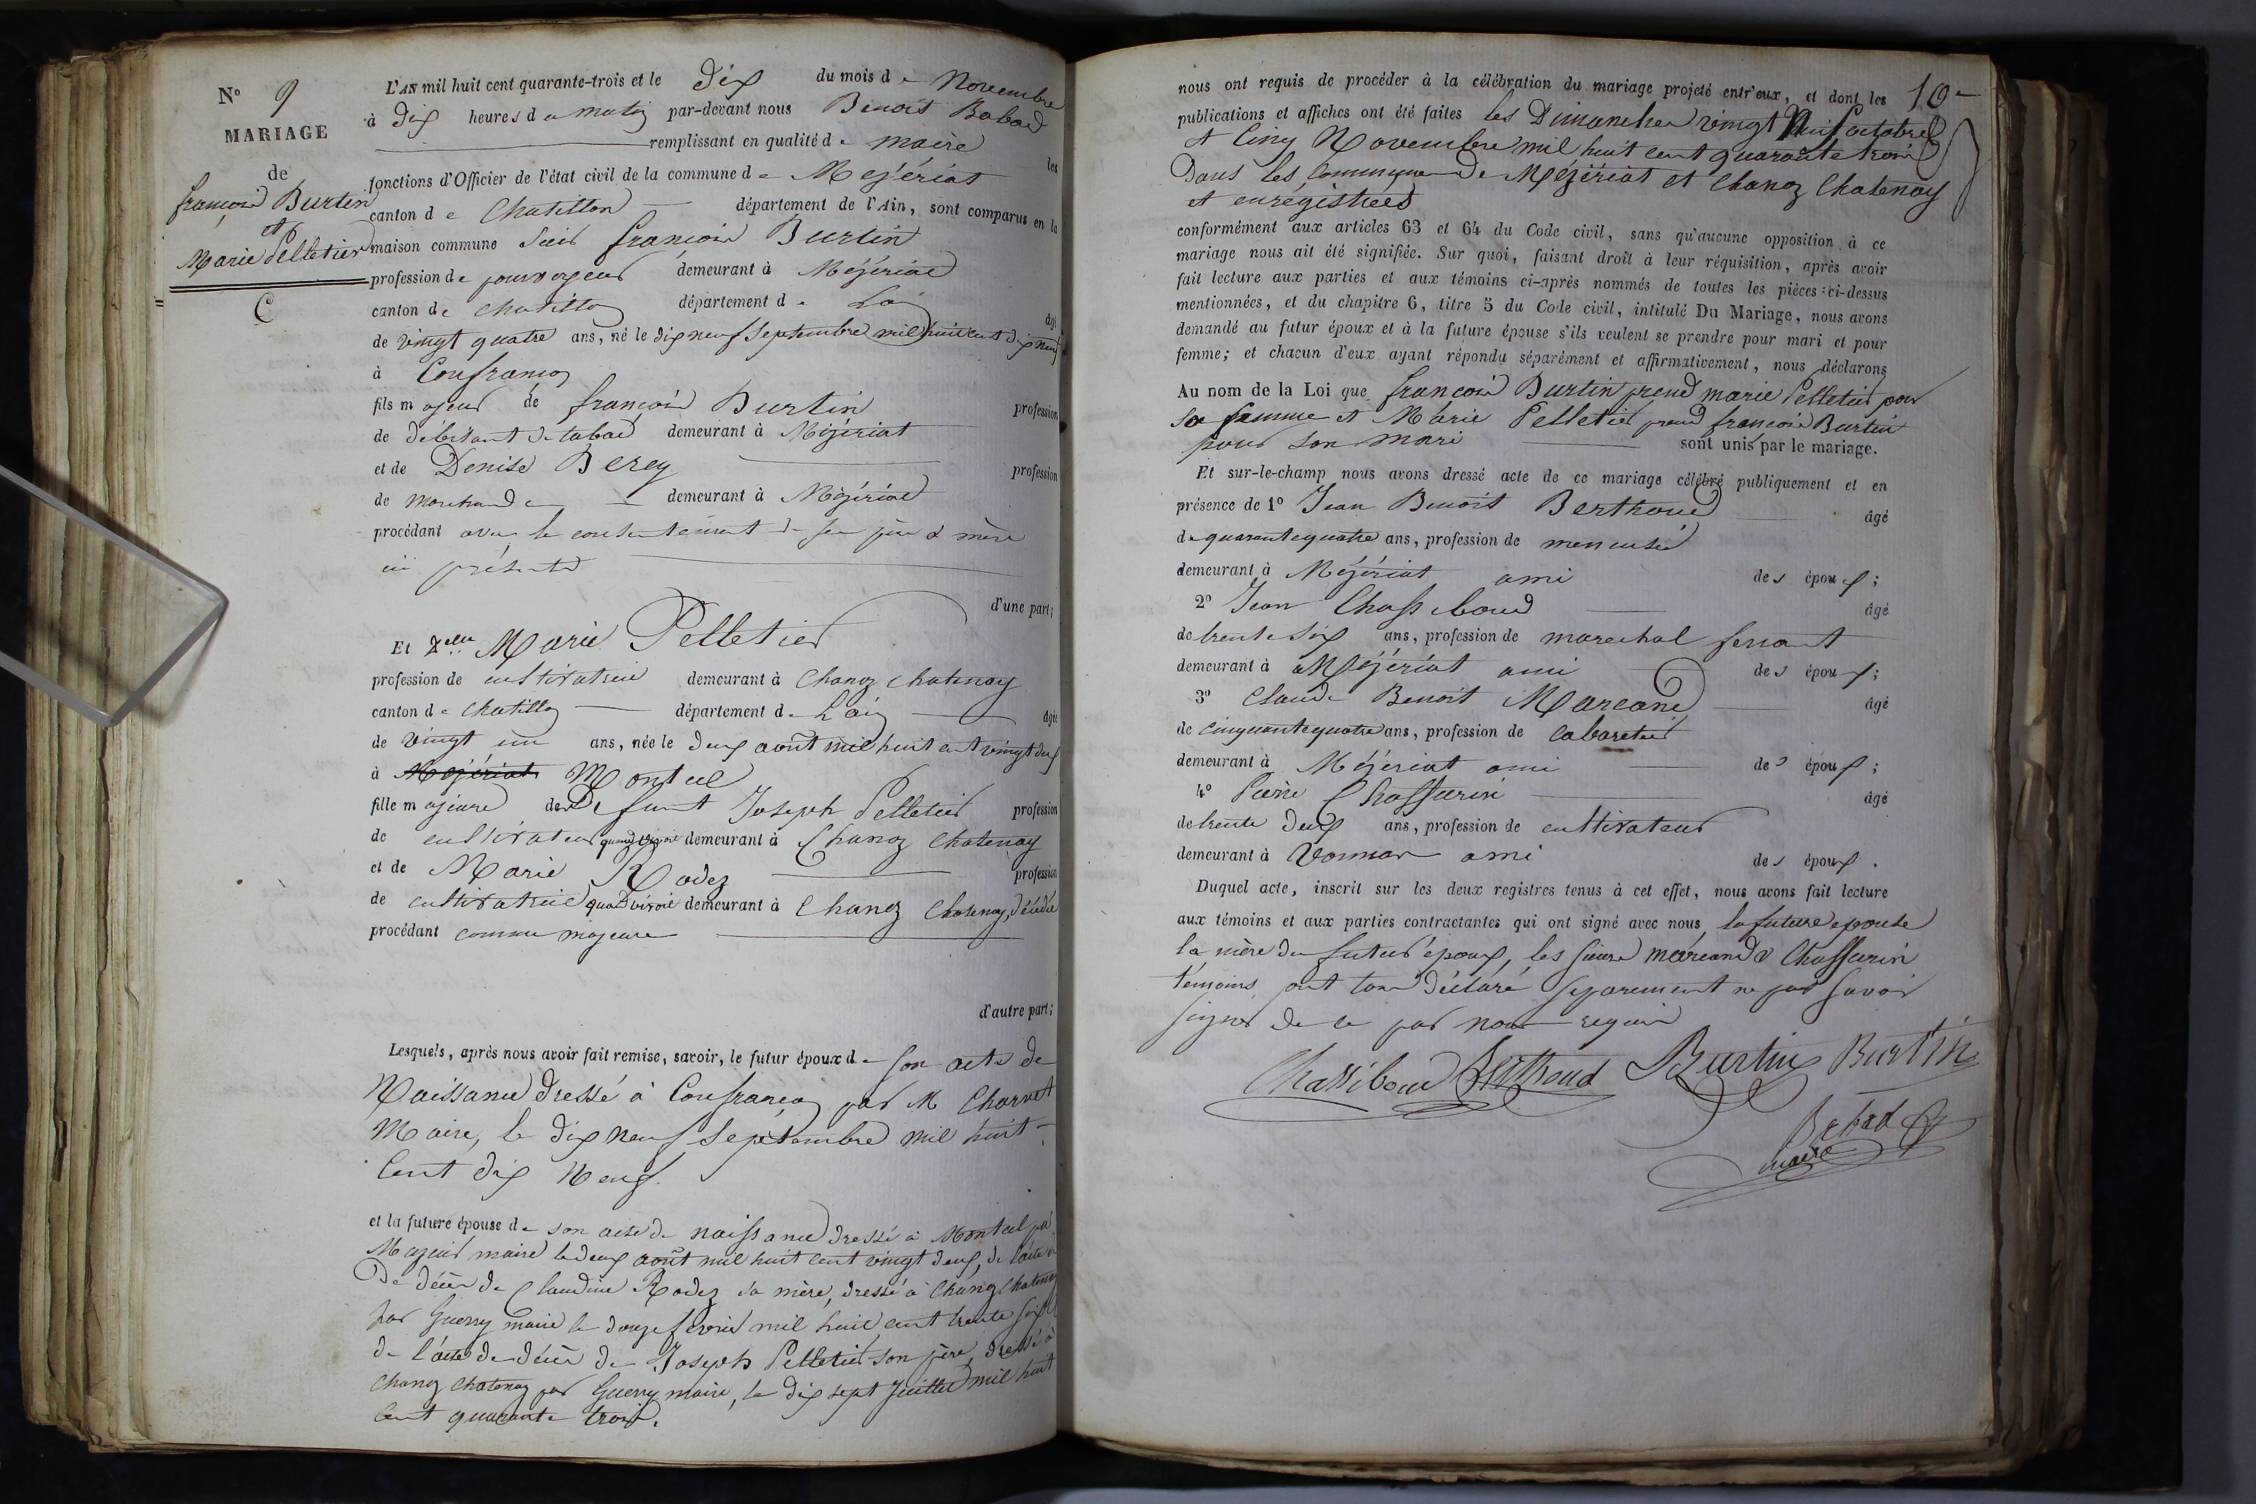 N.° 9
MARIAGE
de
françois Burtin
et
Marie Pelletier
C
L'AN mil huit cent quarante-trois et le Dix du mois d e Novembre
à Dix heures d u matin par-devant nous Benoit Babad
remplissant en qualité d e maire les
fonctions d'Officier de l'état civil de la commune d e Mézériat
canton d e Chatillon département de l'Ain, sont comparus en la
maison commune Sieur françois Burtin
profession de demeurant à Mézériat
canton de Chatillon département d e L'ain âgé
de vingt quatre ans, né le dix neuf Septembre mil huit cent dix neuf
à Confrançon
fils m ajeur de françois Burtin profession
de débitant de tabac demeurant à Mézériat
et de Denise Berey profession
de Marchande demeurant à Mézériat
procédant avec le consentement de ses père & mère
ici présents
d'une part;
Et Delle Marie Pelletier
profession de cultivatrice demeurant à Chanoz Chatenay
canton d e Chatillon département d e L'ain âgée
de vingt un ans, née le deux août mil huit cent vingt deux
à Mézériat Monteel
fille m ajeure de Defunt Joseph Pelletier profession
de cultivateur quand vivait demeurant à Chanoz Chatenay
et de Marie Rodez profession
de cultivatrice quand vivait demeurant à Chanoz Chatenay, décédée
procédant comme majeure
d'autre part;
Lesquels, après nous avoir fait remise, savoir, le futur époux d e son acte de
Naissance dressé à Confrançon par M Charvet
Maire, le dix neuf Septembre mil huit
Cent dix Neuf.
et la future épouse de son acte de naissance dressé à Montcel par
maire le deux août mil huit cent vingt deux, de l'acte
De décès de Claudine Rodez sa mère, dressé à Chanoz Chatenay
par Guerry maire le douze février mil huit cent trente six
de l'acte de décès de Joseph Pelletier son père, dressé à
Chanoz Chatenay par Guerry maire, le dix sept Juillet mil huit
Cent quarante trois.
10
nous ont requis de procéder à la célébration du mariage projeté entr'eux, et dont les
publications et affiches ont été faites les Dimanches vingt Neuf octobre
et Cinq Novembre mil huit cent quarante trois
Dans les Communes De Mézériat et Chanoz Chatenay
et enregistrées
conformément aux articles 63 et 64 du Code civil, sans qu'aucune opposition à ce
mariage nous ait été signifiée. Sur quoi, faisant droit à leur réquisition, après avoir
fait lecture aux parties et aux témoins ci-après nommés de toutes les pièces ci-dessus
mentionnées, et du chapitre 6, titre 5 du Code civil, intitulé Du Mariage, nous avons
demandé au futur époux et à la future épouse s'ils veulent se prendre pour mari et pour
femme; et chacun d'eux ayant répondu séparément et affirmativement, nous déclarons
Au nom de la Loi que françois Burtin prend marie Pelletier pour
sa femme et Marie Pelletier prend françois Burtin
pour son mari sont unis par le mariage.
Et sur-le-champ nous avons dressé acte de ce mariage célébré publiquement et en
présence de 1° Jean Benoit Berthoud âgé
de quarante quatre ans, profession de menuisier
demeurant à Mézériat ami des époux;
2° Jean Chassiboud âgé
de trente six ans, profession de marechal ferrant
demeurant à Mézériat ami des époux;
3° Claude Benoit Marcand âgé
de cinquante quatre ans, profession de Cabaretier
demeurant à Mézériat ami des époux;
4° Pierre Chassurin âgé
de trente deux ans, profession de cultivateur
demeurant à Vonnas ami des époux.
Duquel acte, inscrit sur les deux registres tenus à cet effet, nous avons fait lecture
aux témoins et aux parties contractantes qui ont signé avec nous, la future épouse
la mère du futur époux, les sieurs marcand & Chassurin
témoins ont tous déclaré séparement ne pas savoir
signer de ce par nous requis
Chassiboud Berthoud Burtin Burtin
Babad
maire